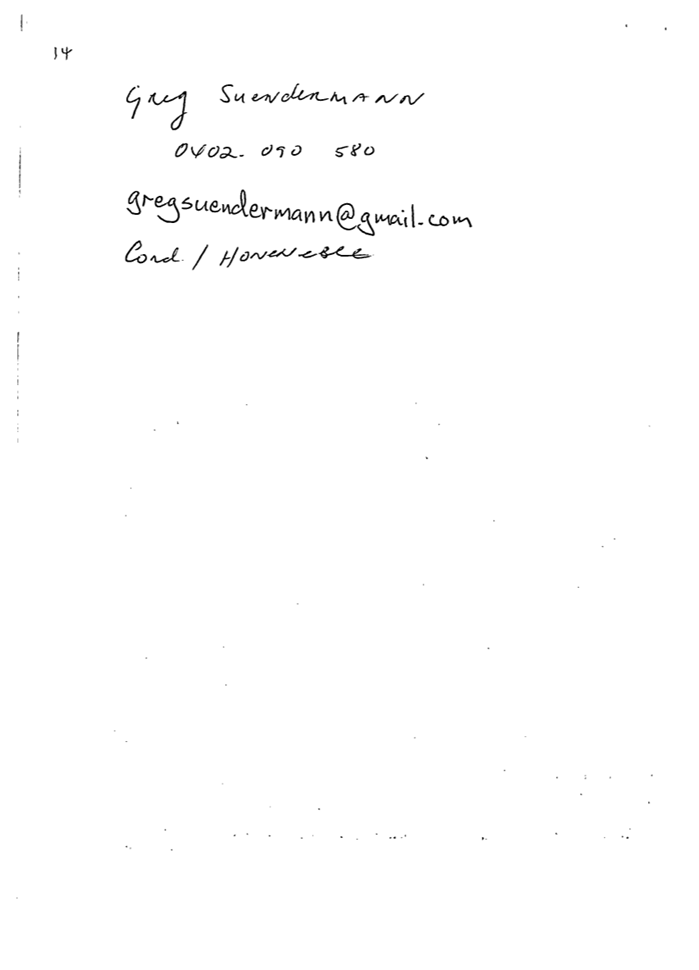 14
Greg Suendermann
0402. 090 580
gregsuendermann@gmail.com
/